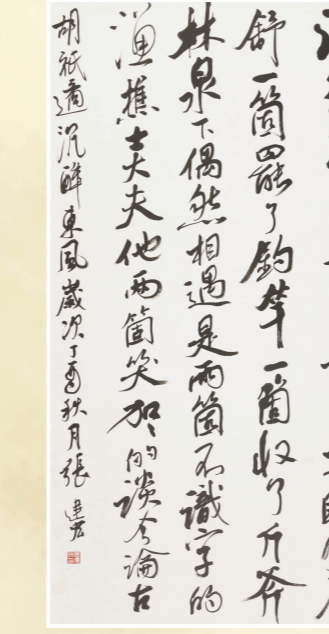 舒一箇罷了釣竿一箇收了斤斧
林泉下偶然相遇是兩箇不識字的
漁樵士大夫他兩箇笑加々的談今論古
胡祇遹沉醉東風歲次丁酉秋月張建